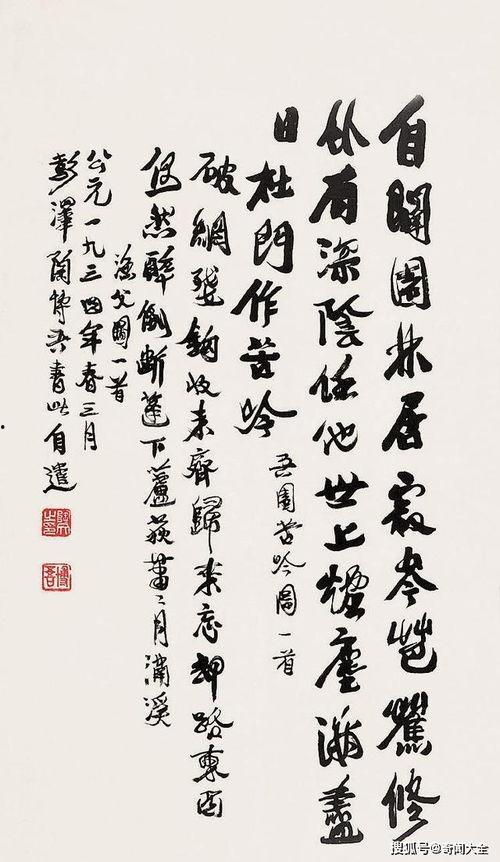 自闢園林居岑修
竹有深陰任他世上煙塵滿盡
日杜門作苦吟
吾園苦吟圖一首
破網鉤收未齊歸來忘却路東西
居然醉倒斷篷下蘆荻蕭〻月滿溪
漁父圖一首
公元一九三四年春三月
彭澤陶博吾書此自遣
博吾
搜狐号@奇闻大全